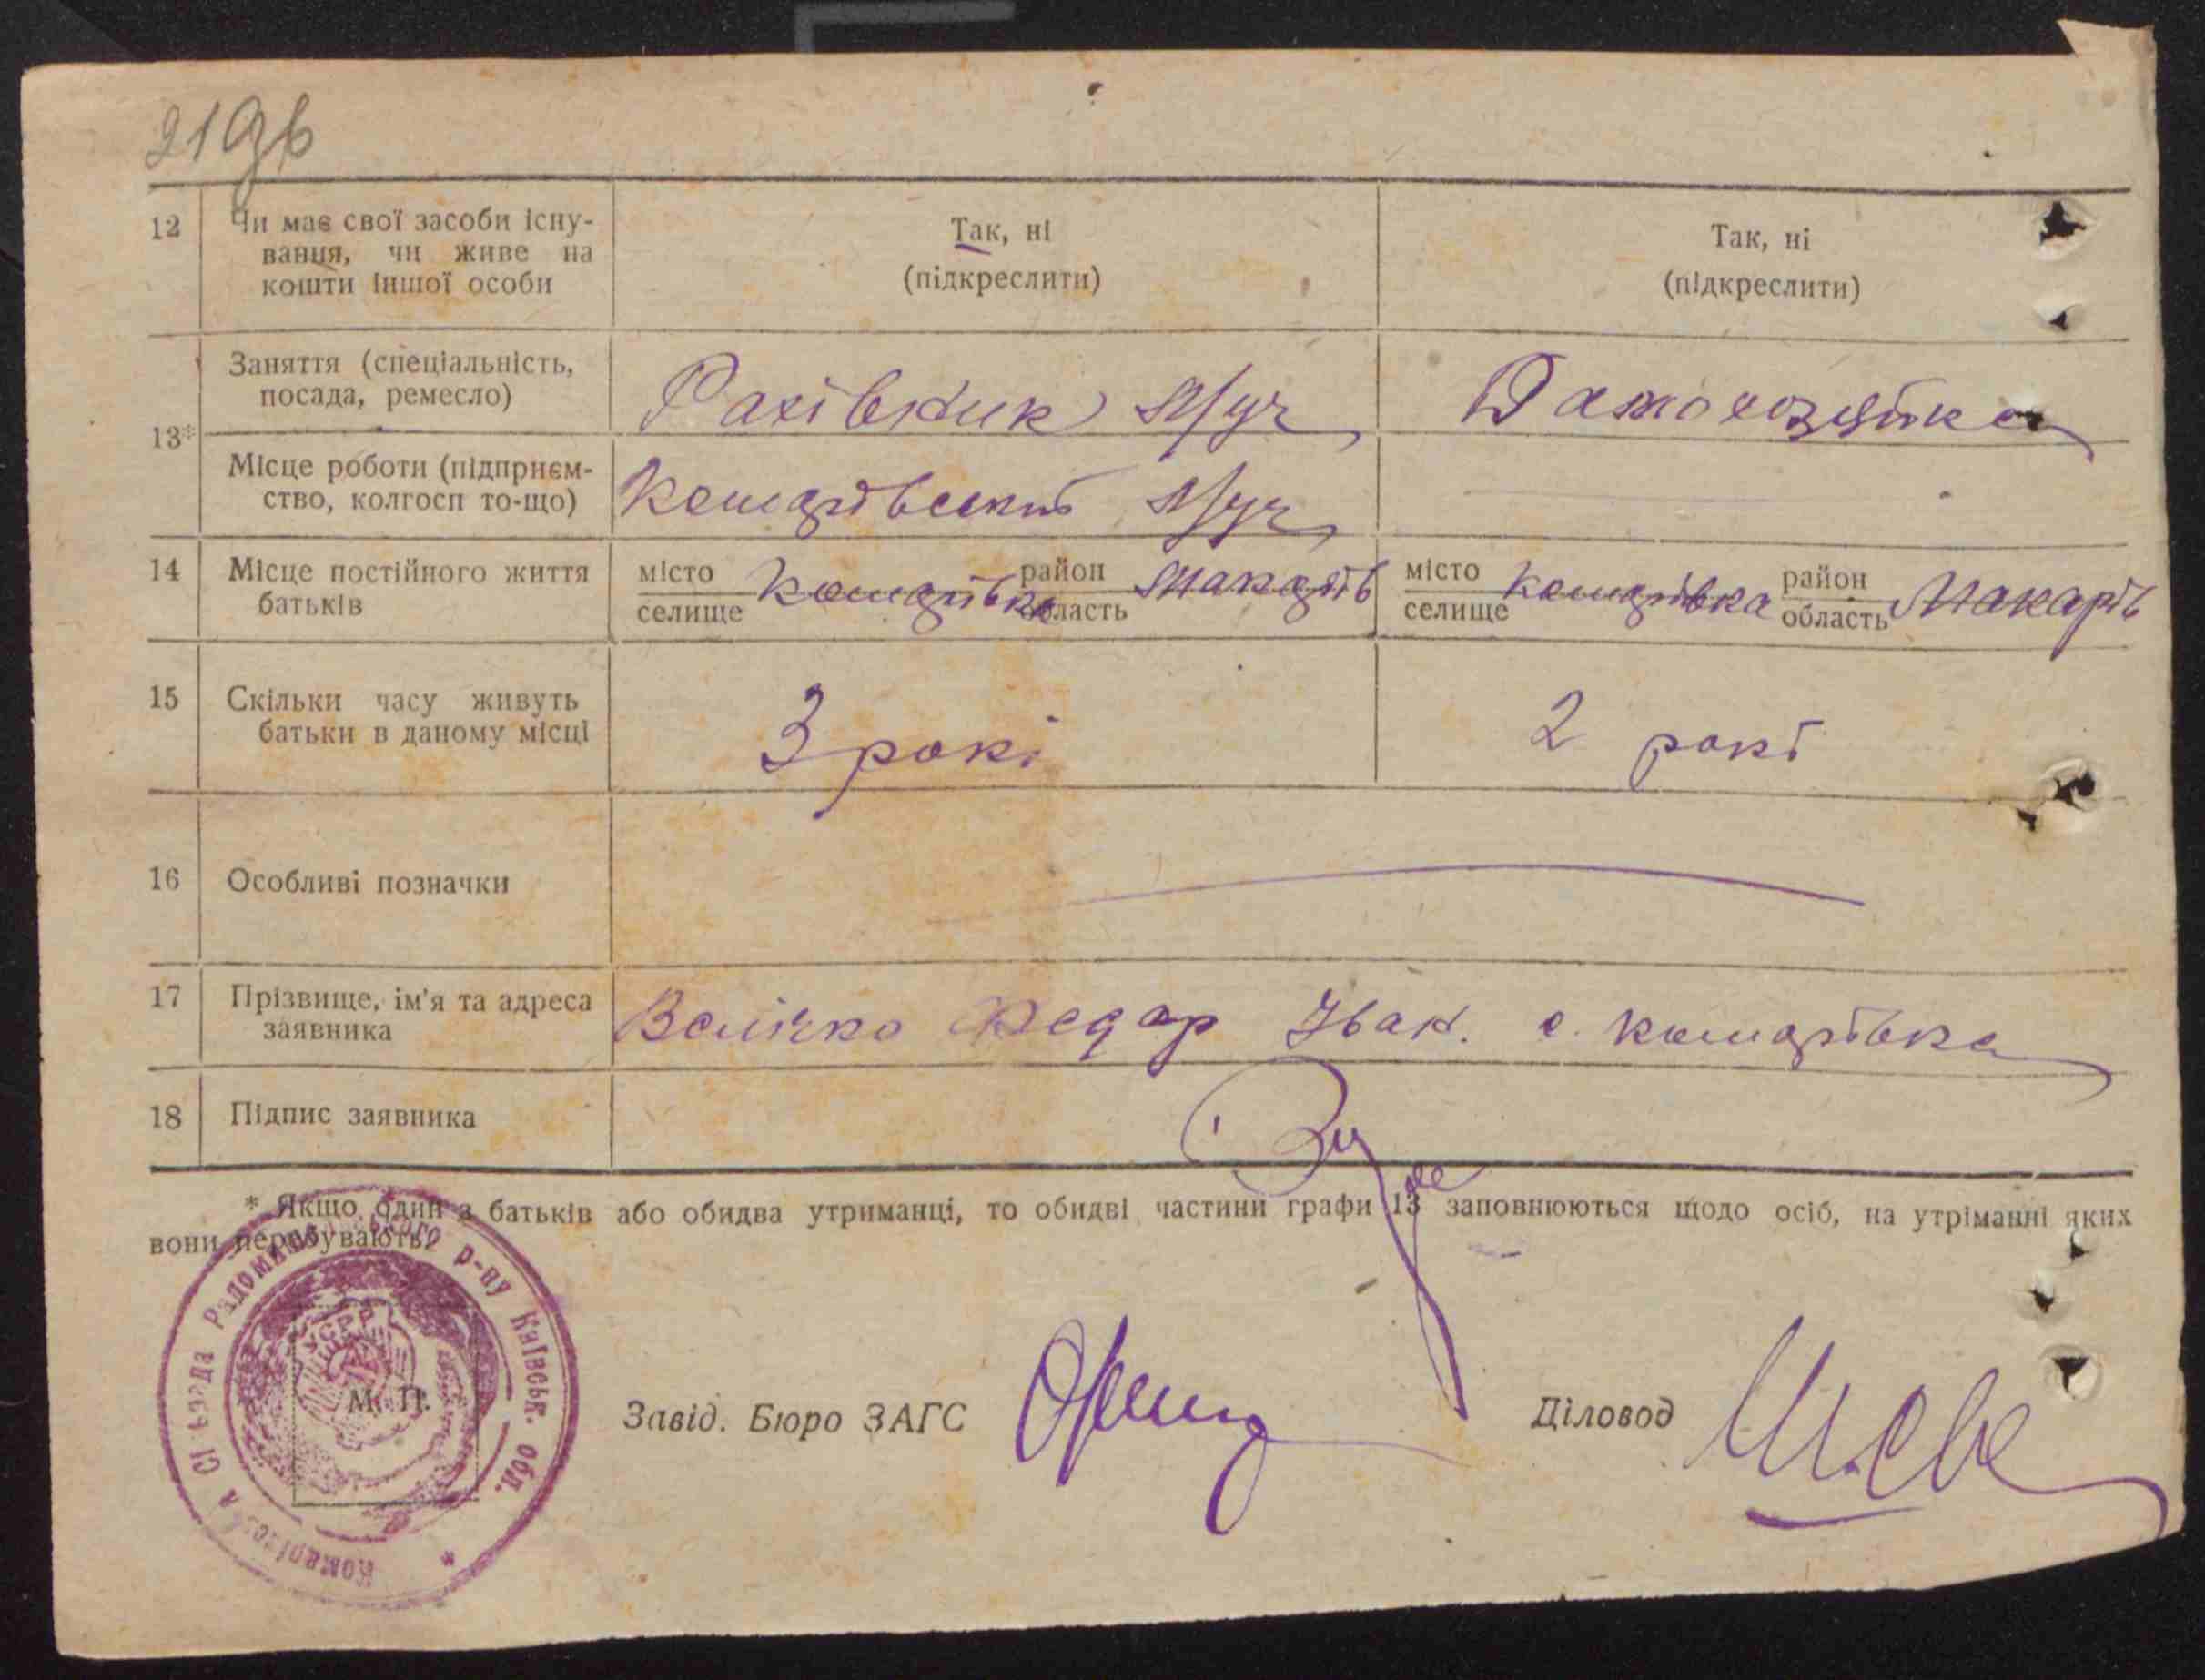 21 зв
12 Чи має свої засоби існу-
вання, чи живе на
кошти іншої особи
Так, ні
(підкреслити)
Так, ні
(підкреслити)
13*
Заняття (спеціальність,
посада, ремесло)
Рахівник
Дамохозяйка
Місце роботи (підприєм-
ство, колгосп то-що)
Комарівський
14 Місце постійного життя
батьків
місто
селище
Комарівка
район
область
Макарів
місто
селище
Комарівка
район
область
Макарів
15 Скільки часу живуть
батьки в даному місці
3 рокі
2 рокі
16 Особливі позначки
17 Прізвище, ім'я та адреса
заявника
Велічко Федар Іван. с. Комарівка
18 Підпис заявника
* Якщо один з батьків або обидва утриманці, то обидві частини графи 13 заповнюються щодо осіб, на утріманні яких
вони перебувають.
р-ну Київськ. обл.
УСРР
М. П.
Завід. Бюро ЗАГС
Діловод